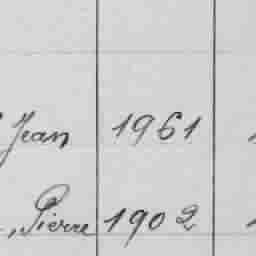 Jean 1961
, Pierre 1902